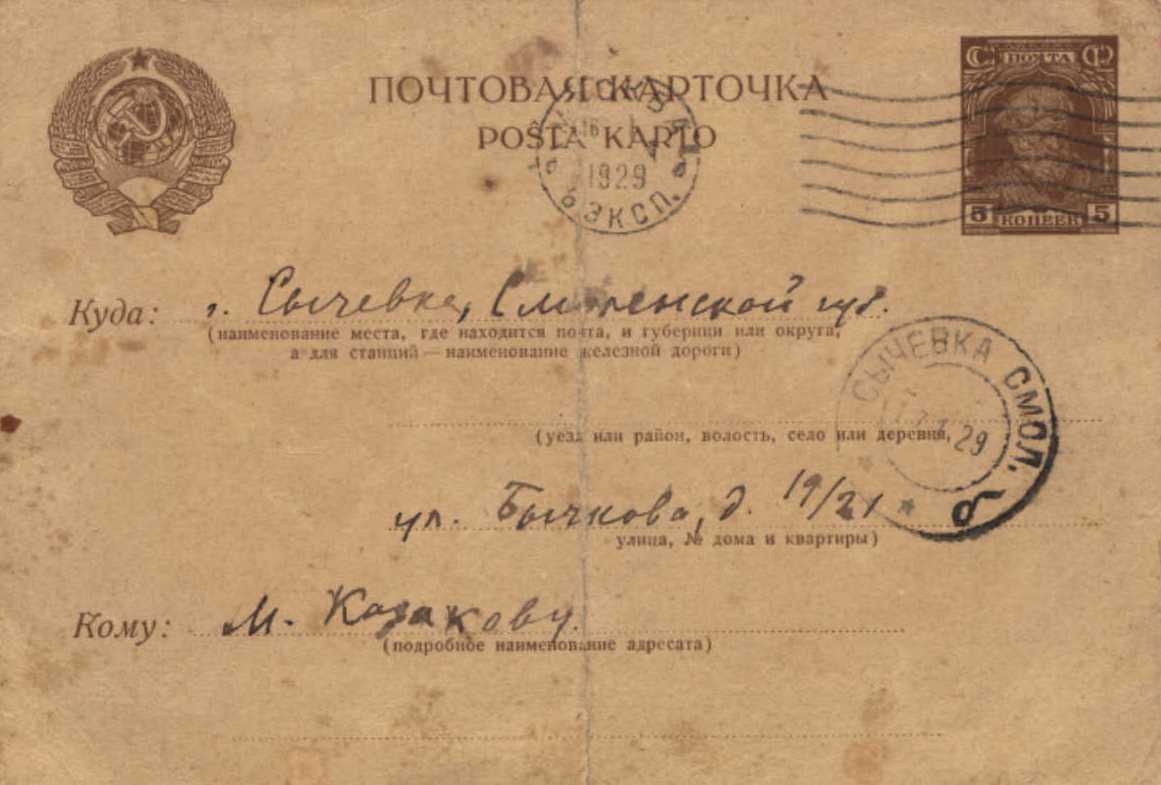 ПОЧТОВАЯ КАРТОЧКА
POŜTA KARTO
ПОЧТА
5 КОПЕЕК 5
МОСКВА
16
1929
6 ЭКСП.
Куда: г. Сычевка, Смоленской губ.
(наименование места, где находится почта, и губернии или округа,
а для станций — наименование железной дороги)
СЫЧЕВКА СМОЛ.
29
б
(уезд или район, волость, село или деревня,
ул. Бычкова, д. 19/21
улица, № дома и квартиры)
Кому: М. Казакову.
(подробное наименование адресата)